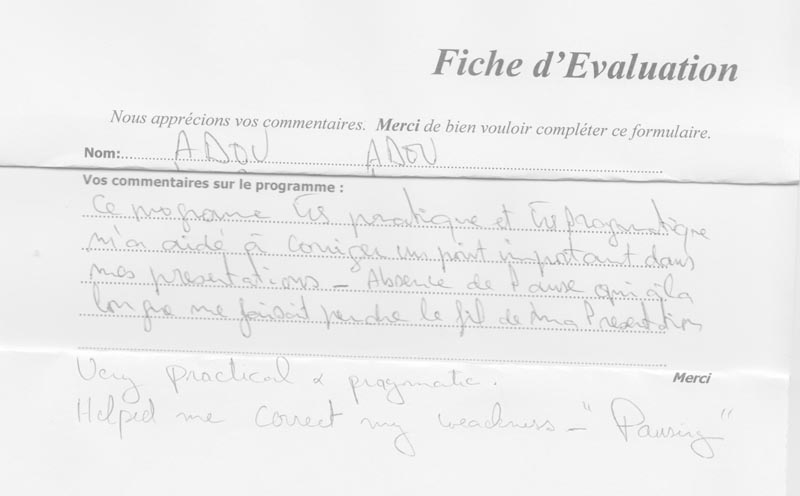 Fiche d'Evaluation
Nous apprécions vos commentaires. Merci de bien vouloir compléter ce formulaire.
Nom: ADOU ADOU
Vos commentaires sur le programme :
Ce programe très pratique et très pragmatique
m'a aidé à corriger un point important dans
mes presentations - Absence de Pause qui à la
longue me faisait perdre le fil de ma Presentation
Merci
Very practical & pragmatic.
Helped me correct my weakness - "Pausing"